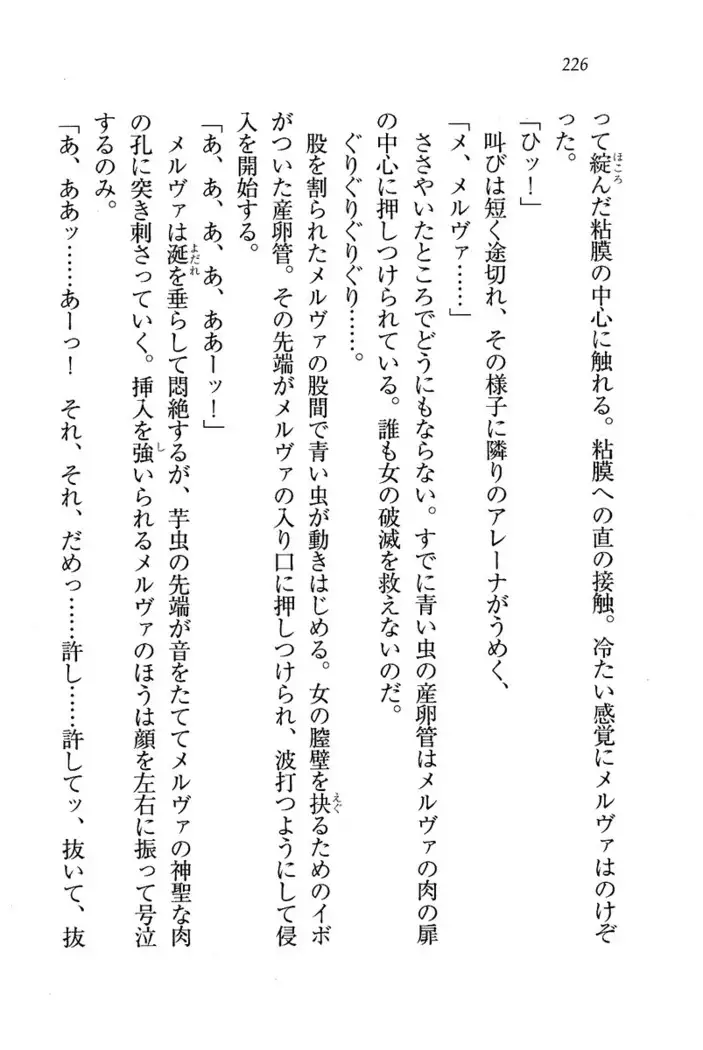 226
って綻んだ粘膜の中心に触れる。粘膜への直の接触。冷たい感覚にメルヴァはのけぞ
ほころ
った。
「ひッ！」
叫びは短く途切れ、その様子に隣りのアレーナがうめく、
「メ、メルヴァ……」
ささやいたところでどうにもならない。すでに青い虫の産卵管はメルヴァの肉の扉
の中心に押しつけられている。誰も女の破滅を救えないのだ。
ぐりぐりぐりぐり……。
股を割られたメルヴァの股間で青い虫が動きはじめる。女の膣壁を抉るためのイボ
えぐ
がついた産卵管。その先端がメルヴァの入り口に押しつけられ、波打つようにして侵
入を開始する。
「あ、あ、あ、あ、ああーッ！」
メルヴァは涎を垂らして悶絶するが、芋虫の先端が音をたててメルヴァの神聖な肉
よだれ
の孔に突き刺さっていく。挿入を強いられるメルヴァのほうは顔を左右に振って号泣
し
するのみ。
「あ、ああッ……あーっ！　それ、それ、だめっ……許し……許してッ、抜いて、抜